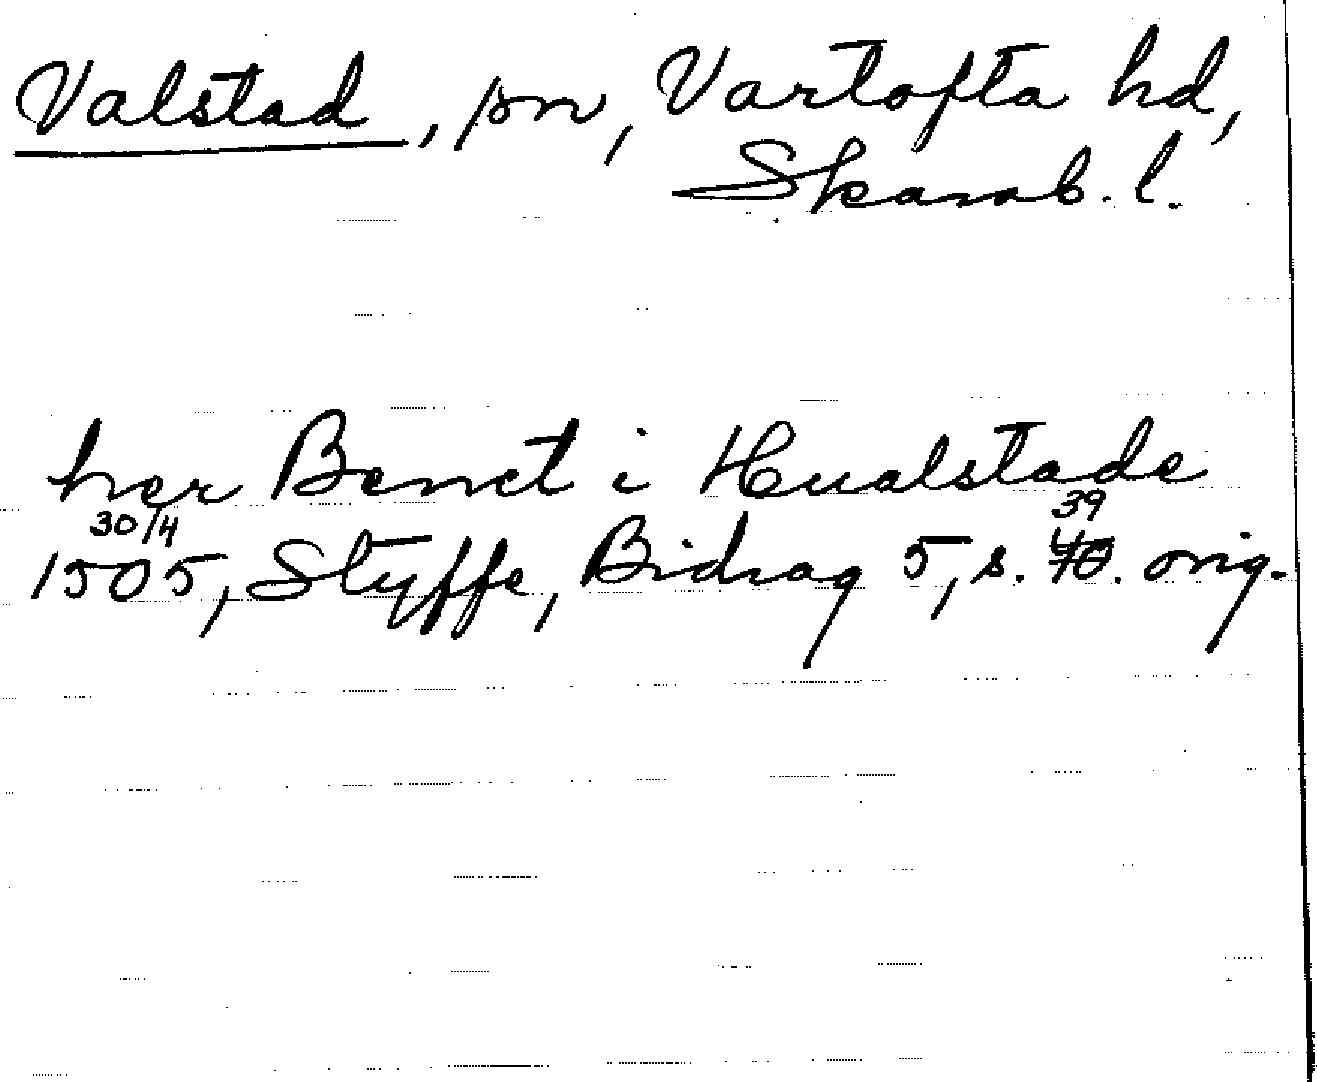 Valstad, sn, Vartofta hd,
Skarab. l.
her Benct i Hualstade
30/4 39
1505, Styffe, Bidrag 5, s. 40. orig.